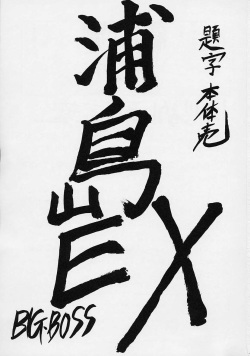 題字 本体
浦島EX
BIG-BOSS